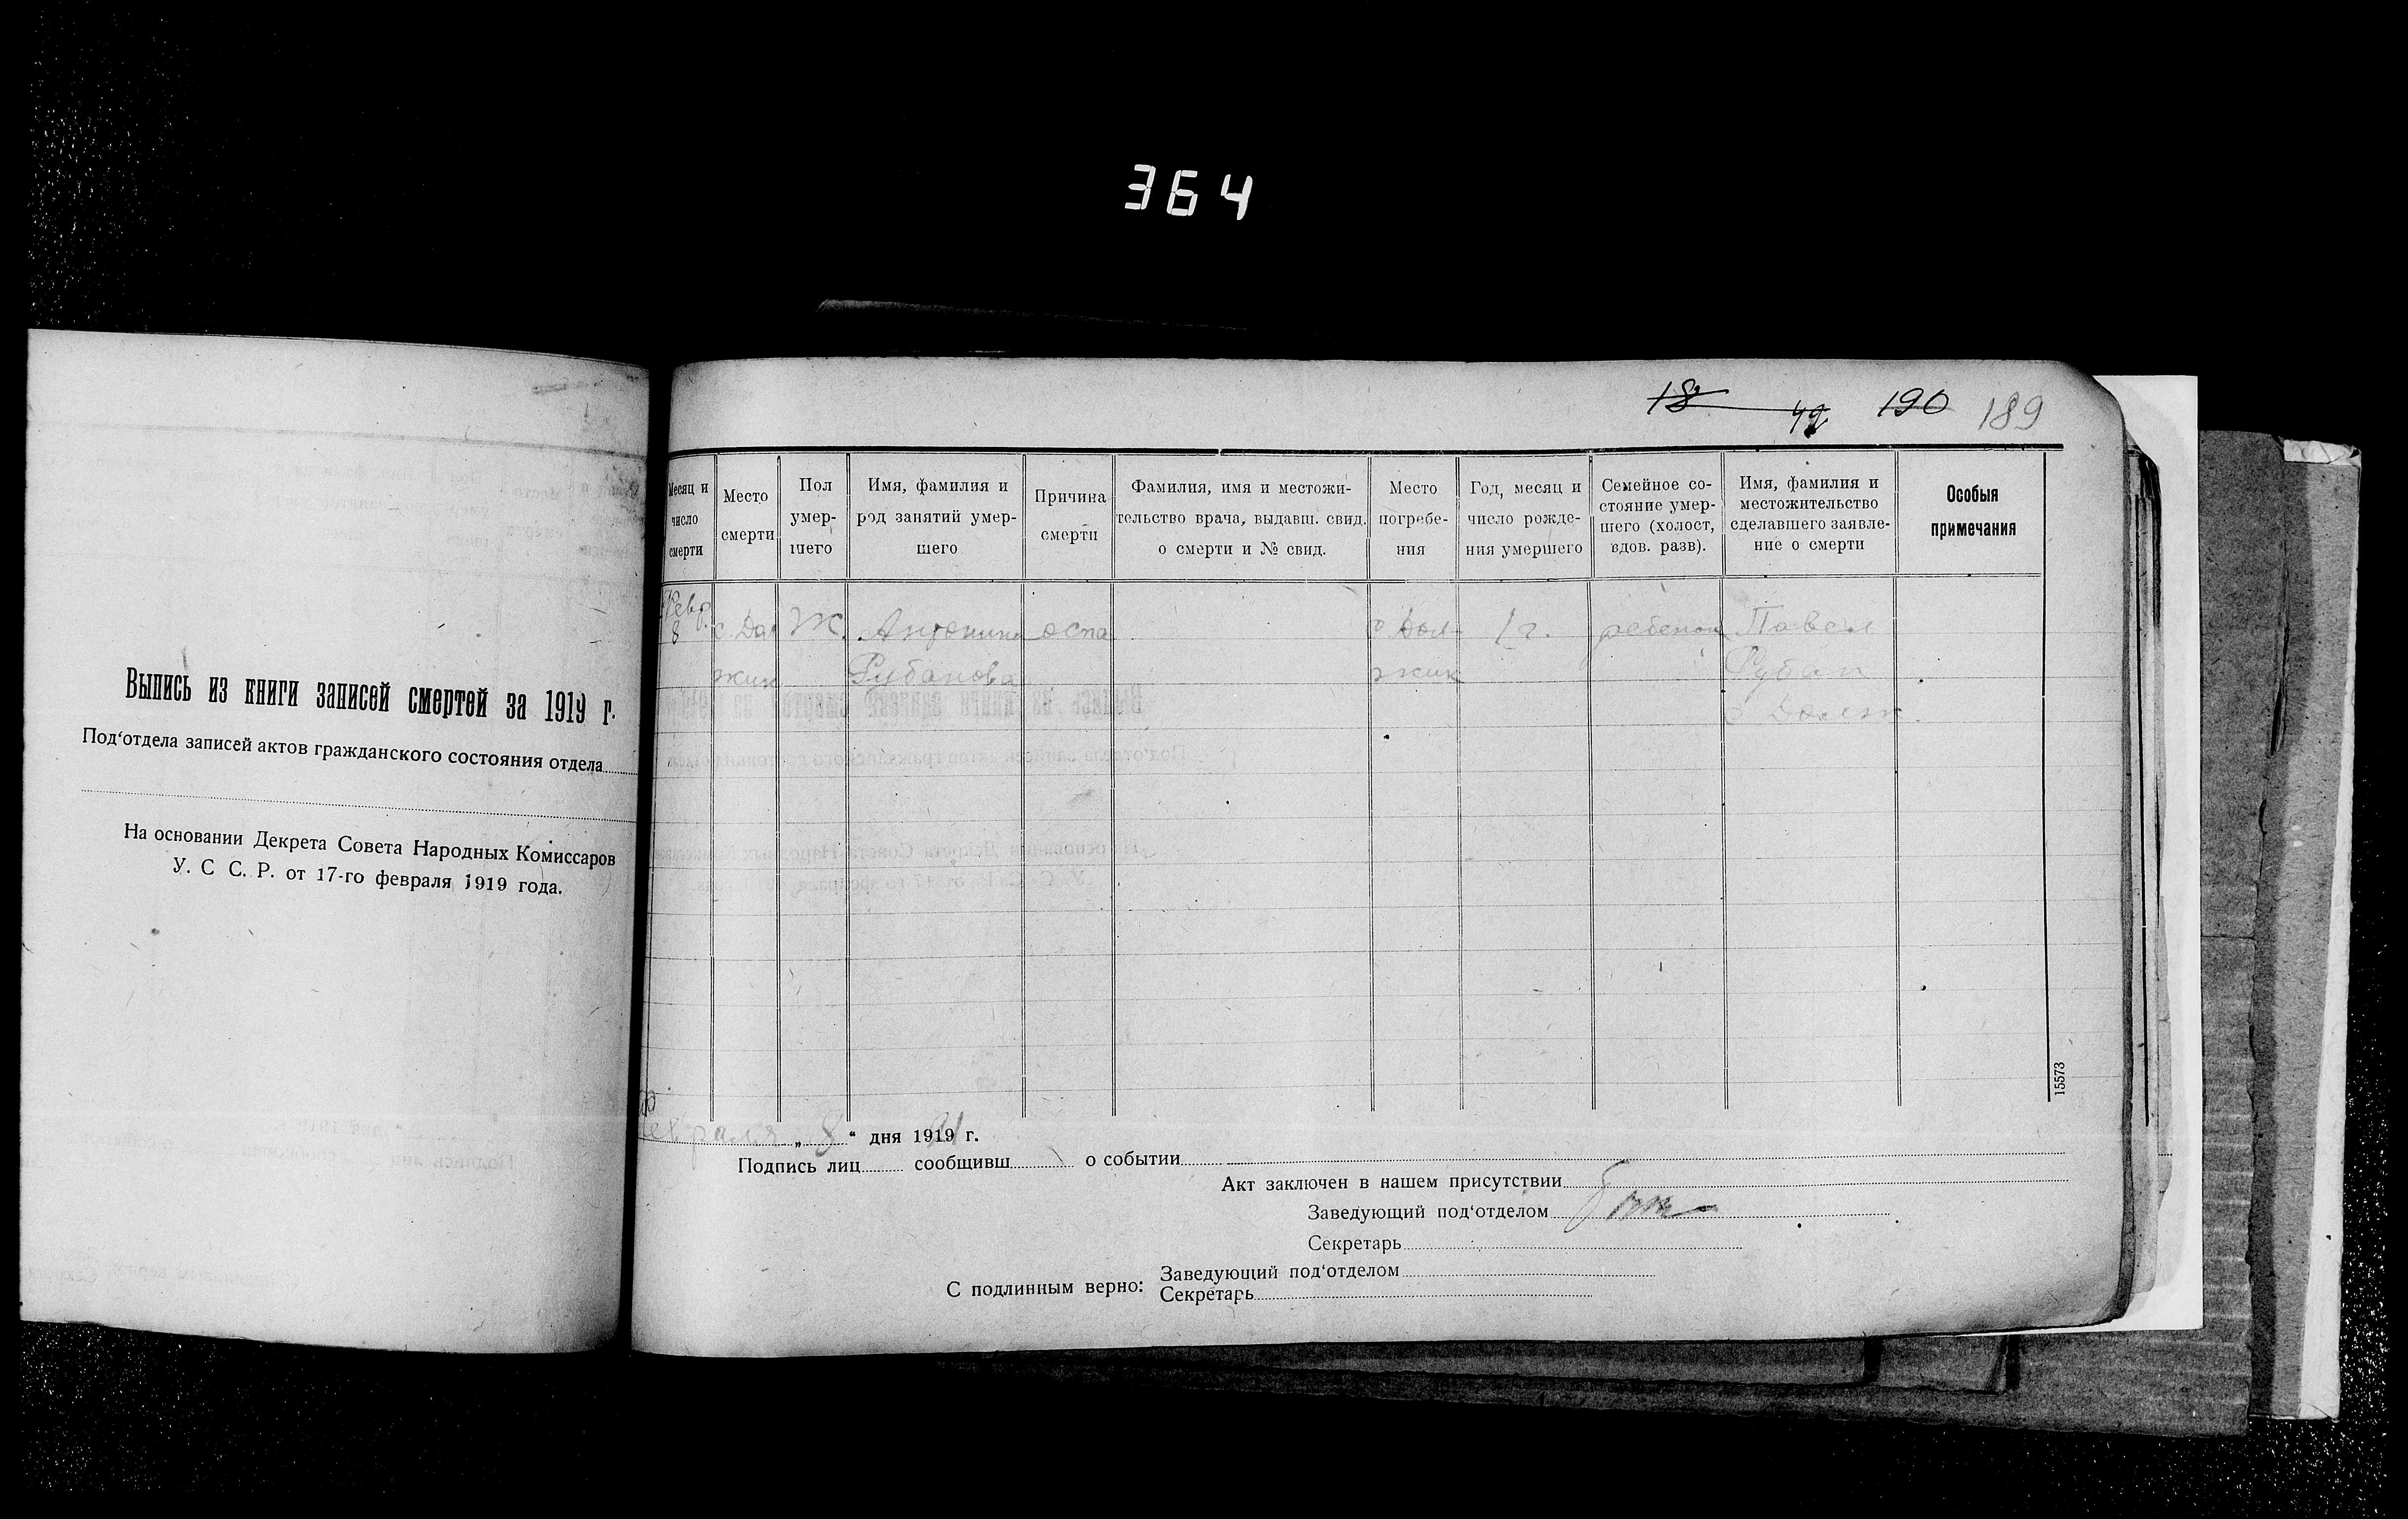 364
Выпись из книги записей смертей за 1919 г.
Под‘отдела записей актов гражданского состояния отдела
На основании Декрета Совета Народных Комиссаров
У. С С. Р. от 17-го февраля 1919 года.
18 42 190 189
Месяц и число смерти
Место смерти
Пол умер-
шего
Имя, фамилия и
род занятий умер-
шего
Причина смерти
Фамилия, имя и местожи-
тельство врача, выдавш. свид.
о смерти и № свид.
Место
погребе-
ния
Год, месяц и
число рожде-
ния умершего
Семейное со-
стояние умер-
шего (холост,
вдов. разв).
Имя, фамилия и
местожительство
сделавшего заявле-
ние о смерти
Особыя
примечания
Февр.
8
с. Дол
жик
Ж.
Антонина
Рубанова
оспа
с Дол-
жик
1 г.
ребенок
Павел
Рубан
с Долж.
15573
Февраля „ 8 “ дня 1919 г.
Подпись лиц сообщивш о событии
Акт заключен в нашем присутствии
Заведующий под‘отделом
Секретарь
С подлинным верно: Заведующий под‘отделом
Секретарь